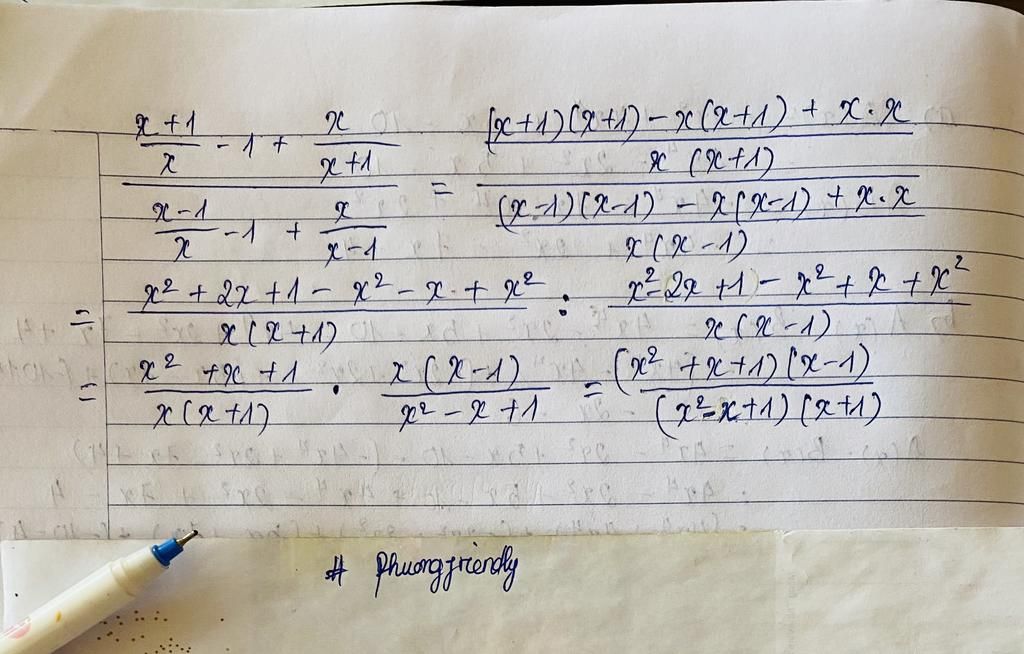 \frac{\frac{x+1}{x} - 1 + \frac{x}{x+1}}{\frac{x-1}{x} - 1 + \frac{x}{x-1}} = \frac{\frac{(x+1)(x+1) - x(x+1) + x \cdot x}{x(x+1)}}{\frac{(x-1)(x-1) - x(x-1) + x \cdot x}{x(x-1)}}
= \frac{x^2 + 2x + 1 - x^2 - x + x^2}{x(x+1)} : \frac{x^2 - 2x + 1 - x^2 + x + x^2}{x(x-1)}
= \frac{x^2 + x + 1}{x(x+1)} \cdot \frac{x(x-1)}{x^2 - x + 1} = \frac{(x^2 + x + 1)(x-1)}{(x^2 - x + 1)(x+1)}
# Phuongfriendly